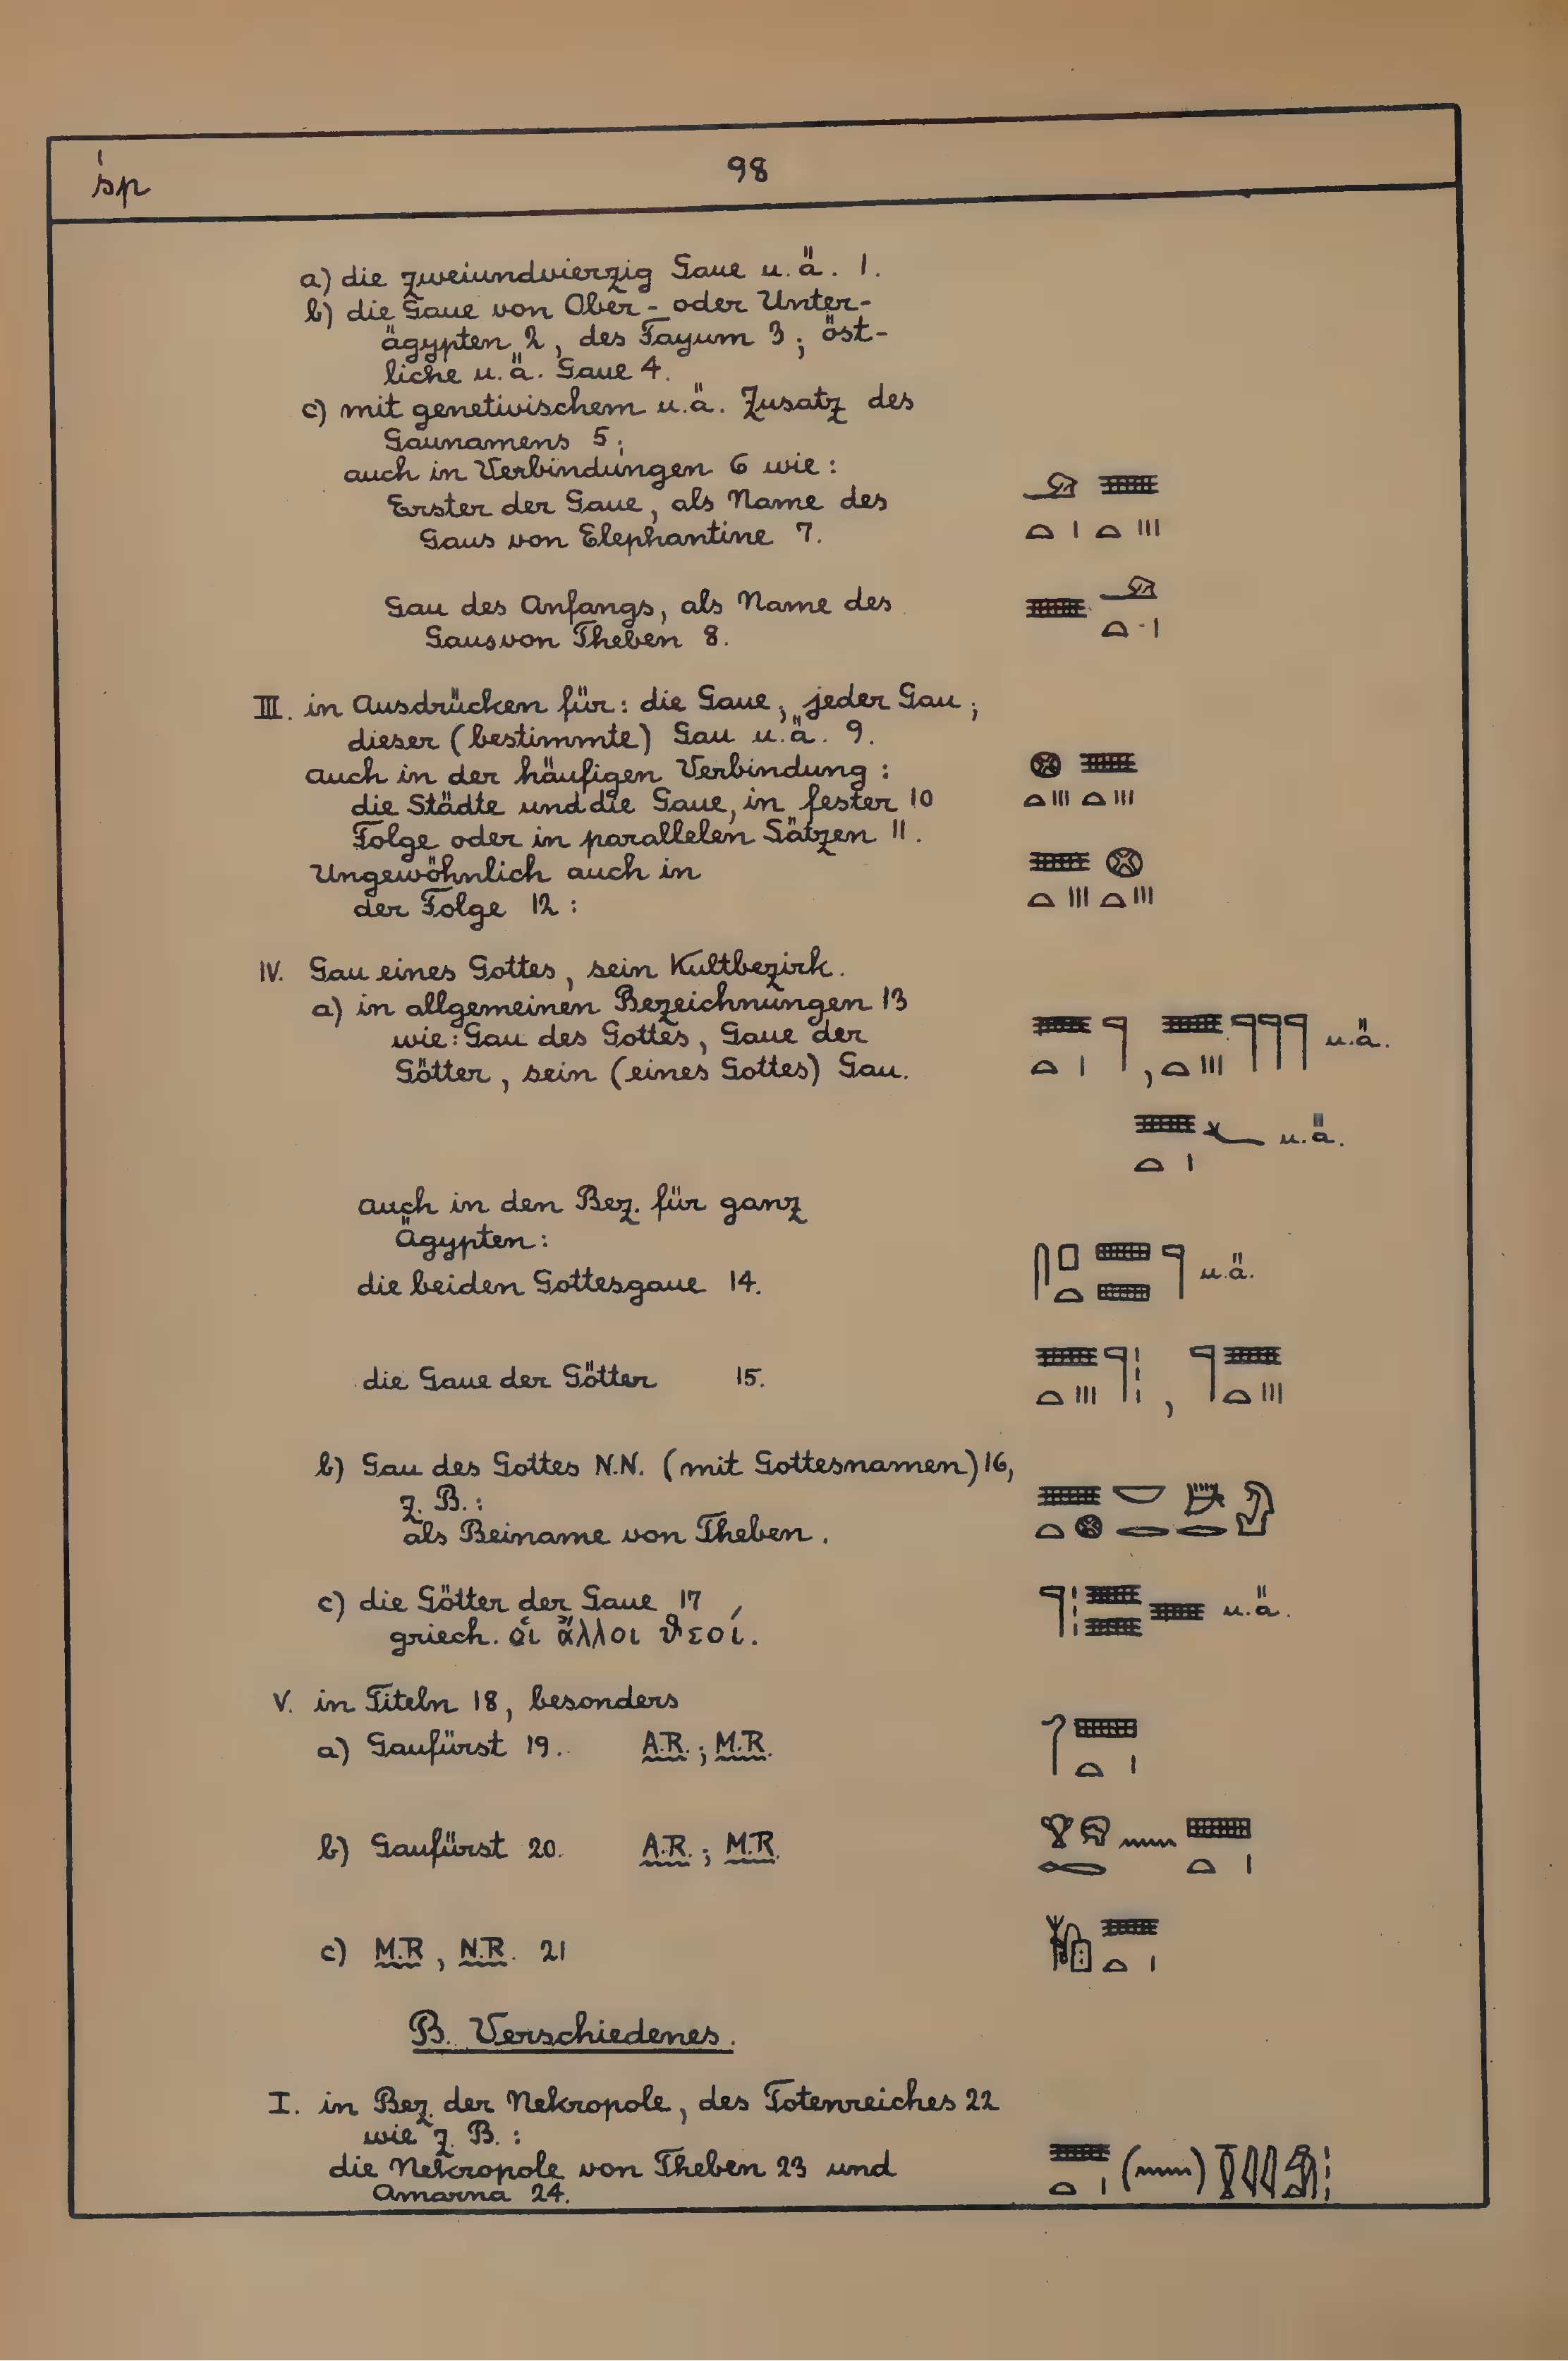 śp
98
a) die zweiundvierzig Gaue u.ä. 1.
b) die Gaue von Ober- oder Unter-
ägypten 2, des Fayum 3; öst-
liche u.ä. Gaue 4.
c) mit genetivischem u.ä. Zusatz des
Gaunamens 5;
auch in Verbindungen 6 wie:
Erster der Gaue, als Name des
Gaus von Elephantine 7.
Gau des Anfangs, als Name des
Gaus von Theben 8.
III. in Ausdrücken für: die Gaue, jeder Gau;
dieser (bestimmte) Gau u.ä. 9.
auch in der häufigen Verbindung:
die Städte und die Gaue, in fester 10
Folge oder in parallelen Sätzen 11.
Ungewöhnlich auch in
der Folge 12:
IV. Gau eines Gottes, sein Kultbezirk.
a) in allgemeinen Bezeichnungen 13
wie: Gau des Gottes, Gaue der
Götter, sein (eines Gottes) Gau.
, u.ä.
u.ä.
auch in den Bez. für ganz
Ägypten:
die beiden Gottesgaue 14. u.ä.
die Gaue der Götter 15.
b) Gau des Gottes N.N. (mit Gottesnamen) 16,
z. B.:
als Beiname von Theben.
c) die Götter der Gaue 17 u.ä.
griech. οἱ ἄλλοι θεοί.
V. in Titeln 18, besonders
a) Gaufürst 19. A.R.; M.R.
b) Gaufürst 20. A.R.; M.R.
c) M.R, N.R. 21
B. Verschiedenes.
I. in Bez. der Nekropole, des Totenreiches 22
wie z. B.:
die Nekropole von Theben 23 und
Amarna 24.